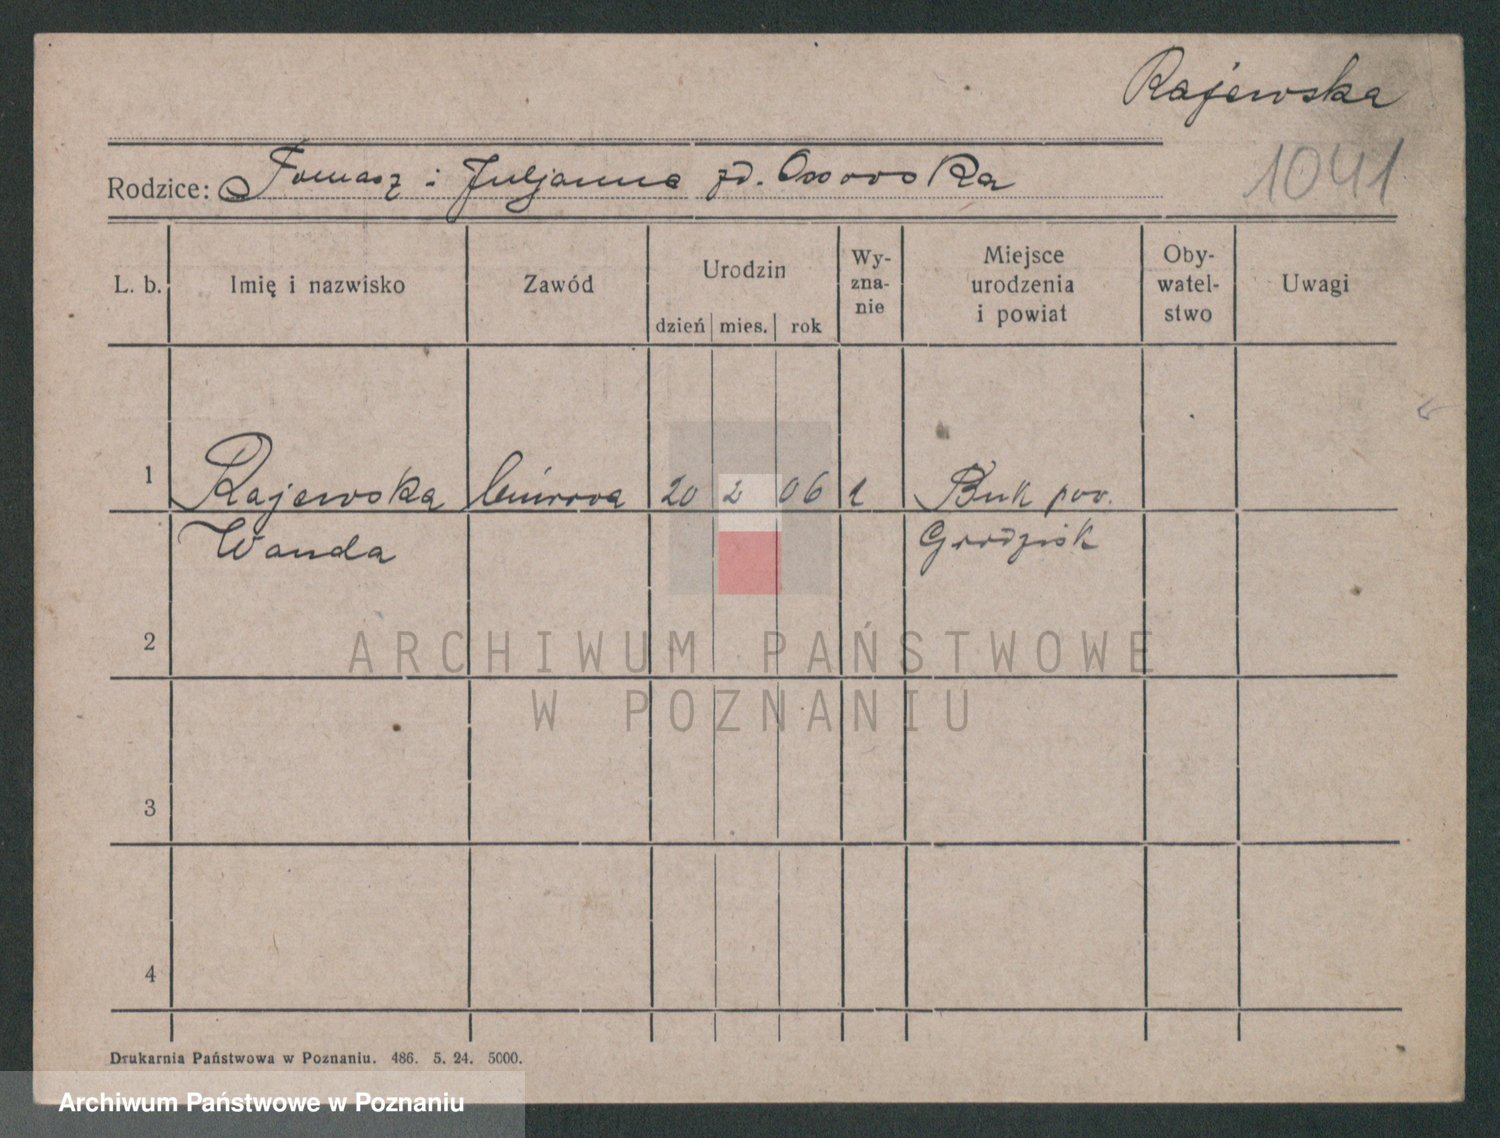 Rajewska
1041
Rodzice: Tomasz i Juljanna zd. Ossowska
L. b.
Imię i nazwisko
Zawód
Urodzin
dzień mies. rok
Wy-
zna-
nie
Miejsce
urodzenia
i powiat
Oby-
watel-
stwo
Uwagi
1 Rajewska biurowa 20 2 06 1 Buk pow.
Wanda Grodzisk
2
ARCHIWUM PAŃSTWOWE
W POZNANIU
3
4
Drukarnia Państwowa w Poznaniu. 486. 5. 24. 5000.
Archiwum Państwowe w Poznaniu